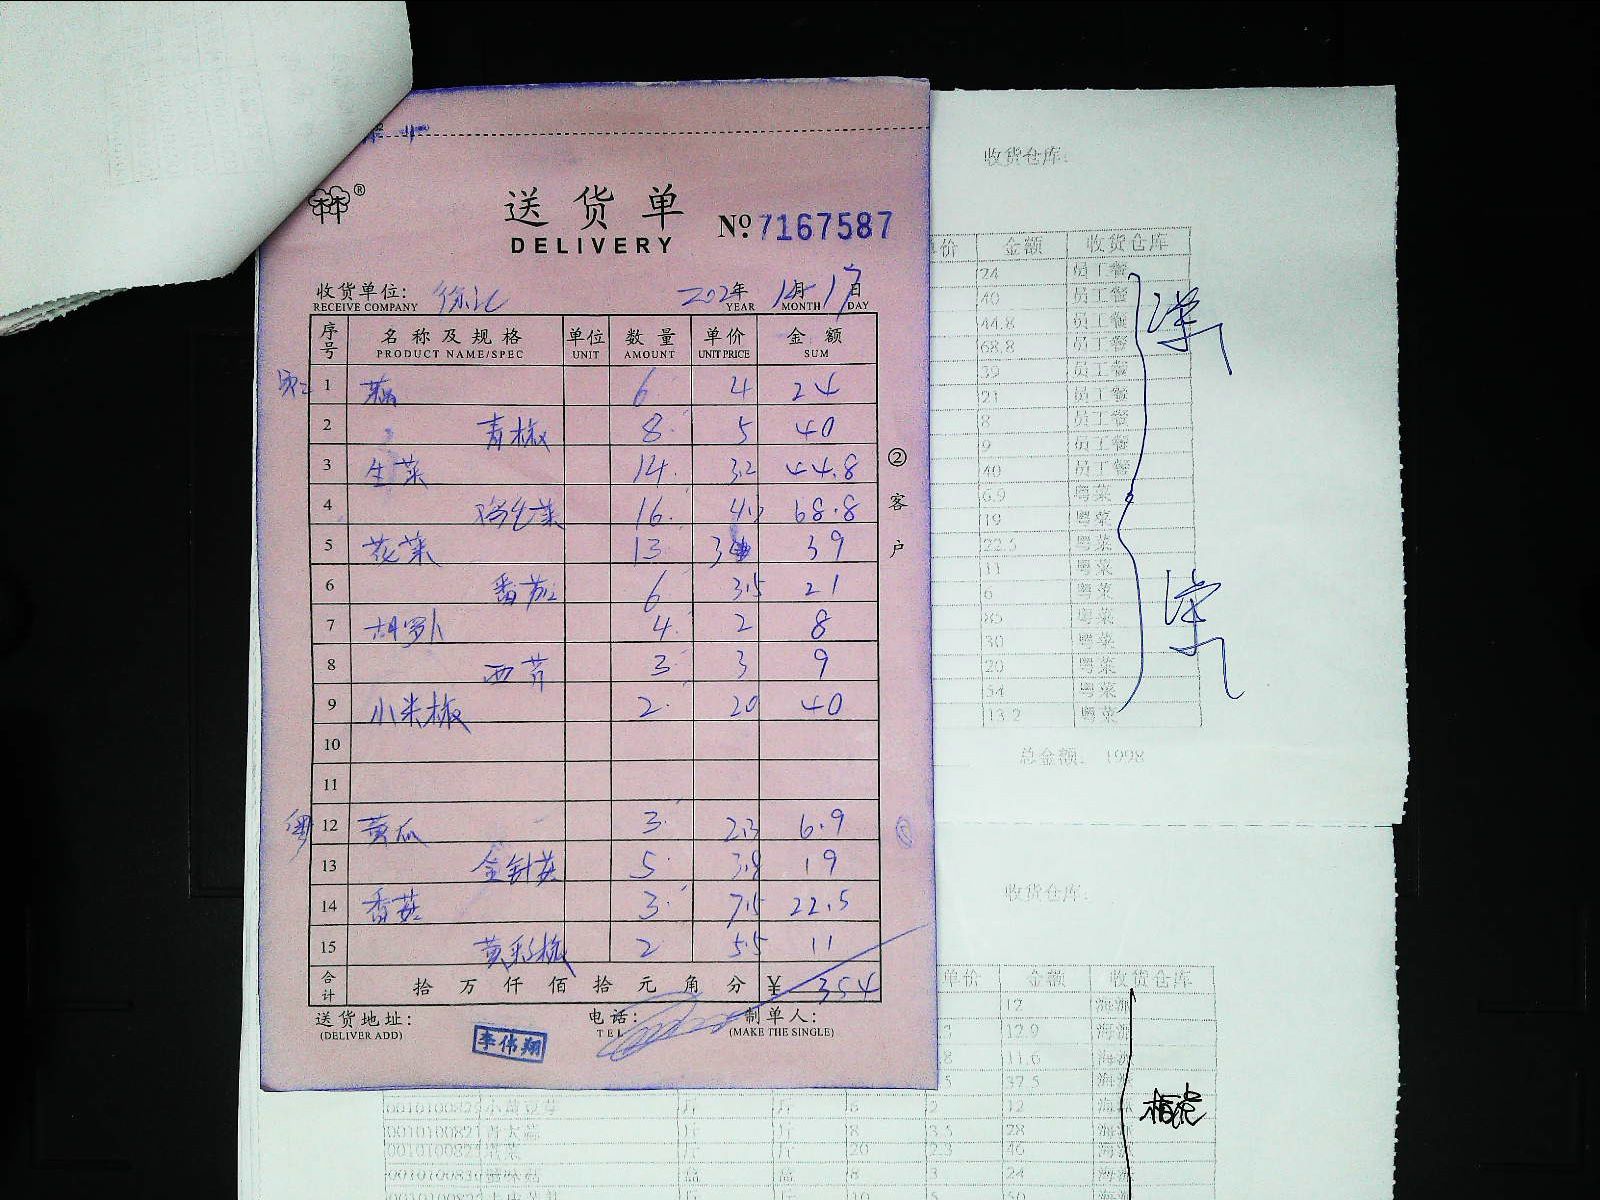 送货单
DELIVERY
No. 7167587
收货单位:
RECEIVE COMPANY
202 年 12月 17日
YEAR MONTH DAY
序号 名称及规格 单位 数量 单价 金额
PRODUCT NAME/SPEC UNIT AMOUNT UNIT PRICE SUM
1 藕 6 4 24
2 青椒 8 5 40
3 生菜 14 3.2 44.8
4 16 4.3 68.8
5 花菜 13 3 39
6 番茄 6 3.5 21
7 胡罗卜 4 2 8
8 西芹 3 3 9
9 小米椒 2 20 40
10
11
粤 12 黄瓜 3 2.3 6.9
13 金针菇 5 3.8 19
14 香菇 3 7.5 22.5
15 黄彩椒 2 5.5 11
合计 拾 万 仟 佰 拾 元 角 分 ¥ 354
送货地址: 电话: 制单人:
(DELIVER ADD) TEL (MAKE THE SINGLE)
李伟翔
② 客户
收货仓库:
价 金额 收货仓库
24 员工餐
40 员工餐
44.8 员工餐
68.8 员工餐
39 员工餐
21 员工餐
8 员工餐
9 员工餐
40 员工餐
6.9 粤菜
19 粤菜
22.5 粤菜
11 粤菜
6 粤菜
85 粤菜
30 粤菜
20 粤菜
54 粤菜
13.2 粤菜
总金额: 1998
收货仓库:
单价 金额 收货仓库
12
12.9
11.6
37.5
斤 斤 6 2 12
斤 斤 8 3.5 28
斤 斤 20 2.3 46
8 3 24
斤 斤 10 5 50